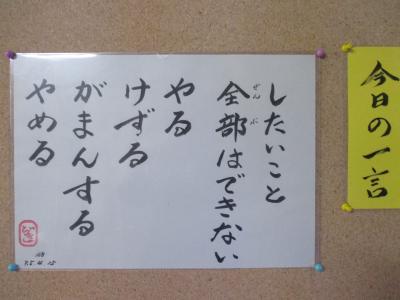 今日の一言
したいこと
全部はできない
ぜんぶ
やる
けずる
がまんする
やめる